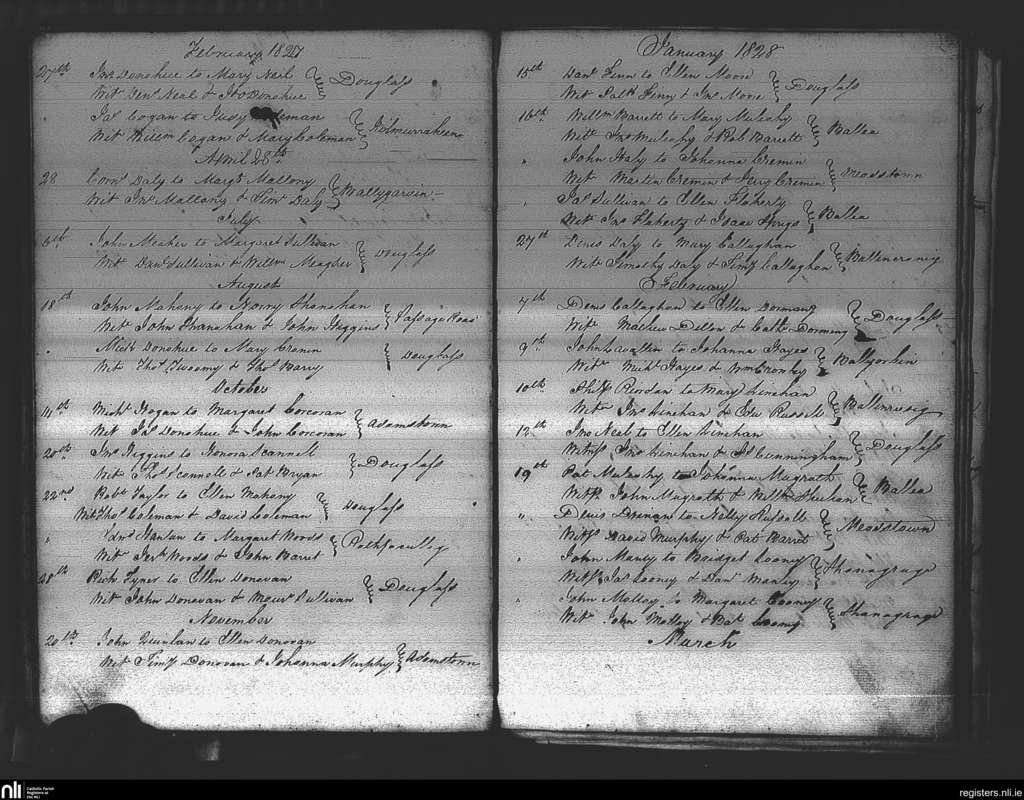 February 1827
27th Jno. Donohue to Mary Neil
Wit Denl. Neal & Jno Donohue } Douglass
Jas Cogan to Judy Coleman
Wit Willm Cogan & Mary Coleman
April 28th
28 Corns. Daly to Margt. Mallony
Wit Jno. Mallony & Timy. Daly } Ballygarvin
July
John Meaher to Margaret Sullivan
Wits. Danl. Sullivan & Willm Meagher } Douglass
August
18th John Mahony to Norry Shanahan
Wits. John Shanahan & John Higgins } Passage Road
Michl Donohue to Mary Cronin
Wit Thos. Twoomy & Thos. Barry } Douglass
October
14th Michl. Hogan to Margaret Corcoran
Wit Jas Donohue & John Corcoran } Adamstown
20th Jno. Higgins to Honora Scannell
Wits. Thos Connell & Pat Bryan } Douglass
22nd Robt. Taylor to Ellen Mahony
Wits Thos. Coleman & David Coleman } Douglass
" Hanlan to Margaret Woods
Wit Jerh Woods & John Baret
28th Richd Tyner to Ellen Donovan
Wit John Donovan & Maurs. Sullivan } Douglass
November
20th John Quinlan to Ellen Donovan
Wit Timy Donovan & Johanna Murphy } Adamstown
January 1828
15th Danl. Finn to Ellen Moore
Wit Patk Finn & Jno. Moore } Douglass
16th Willm Barrett to Mary Mulcahy
Wits. Jno Mulcahy & Rob. Barrett } Ballea
" John Haly to Johanna Cremin
Wit Martin Cremen & Jerry Cremin } Meadstown
" Jas Sullivan to Ellen Flaherty
Wit Jno Flaherty & Isaac Sprigs } Ballea
27th Denis Daly to Mary Callaghan
Wits Timothy Day & Timy. Callaghan
February
7th Denis Callaghan to Ellen Dorman
Wits. Mathew Dillon & Cath. Dorman } Douglass
9th John Cavallin to Johanna Hayes
Wits. Michl Hayes & Wm Crowly
10th Philip Riordan to Mary Linehan
Wits. Jno. Linehan & Edw Russell
12th Jno Neal to Ellen Linehan
Witnss Jno Linehan & Js. Cunningham } Douglass
19th Pat Mulcahy to Johanna Magrath
Witss. John Magrath & Willm } Ballea
" Denis Drinan to Nelly Russell
Witss David Murphy & Pat Barret } Meadstown
" John Manly to Bridget Looney
Witss. Jas Looney & Danl Manly } Shanagraga
" John Molloy to Margaret Cooney
Wits. John Molloy & Cooney } Shanagraga
March
nli
Catholic Parish
Registers at
the NLI
registers.nli.ie